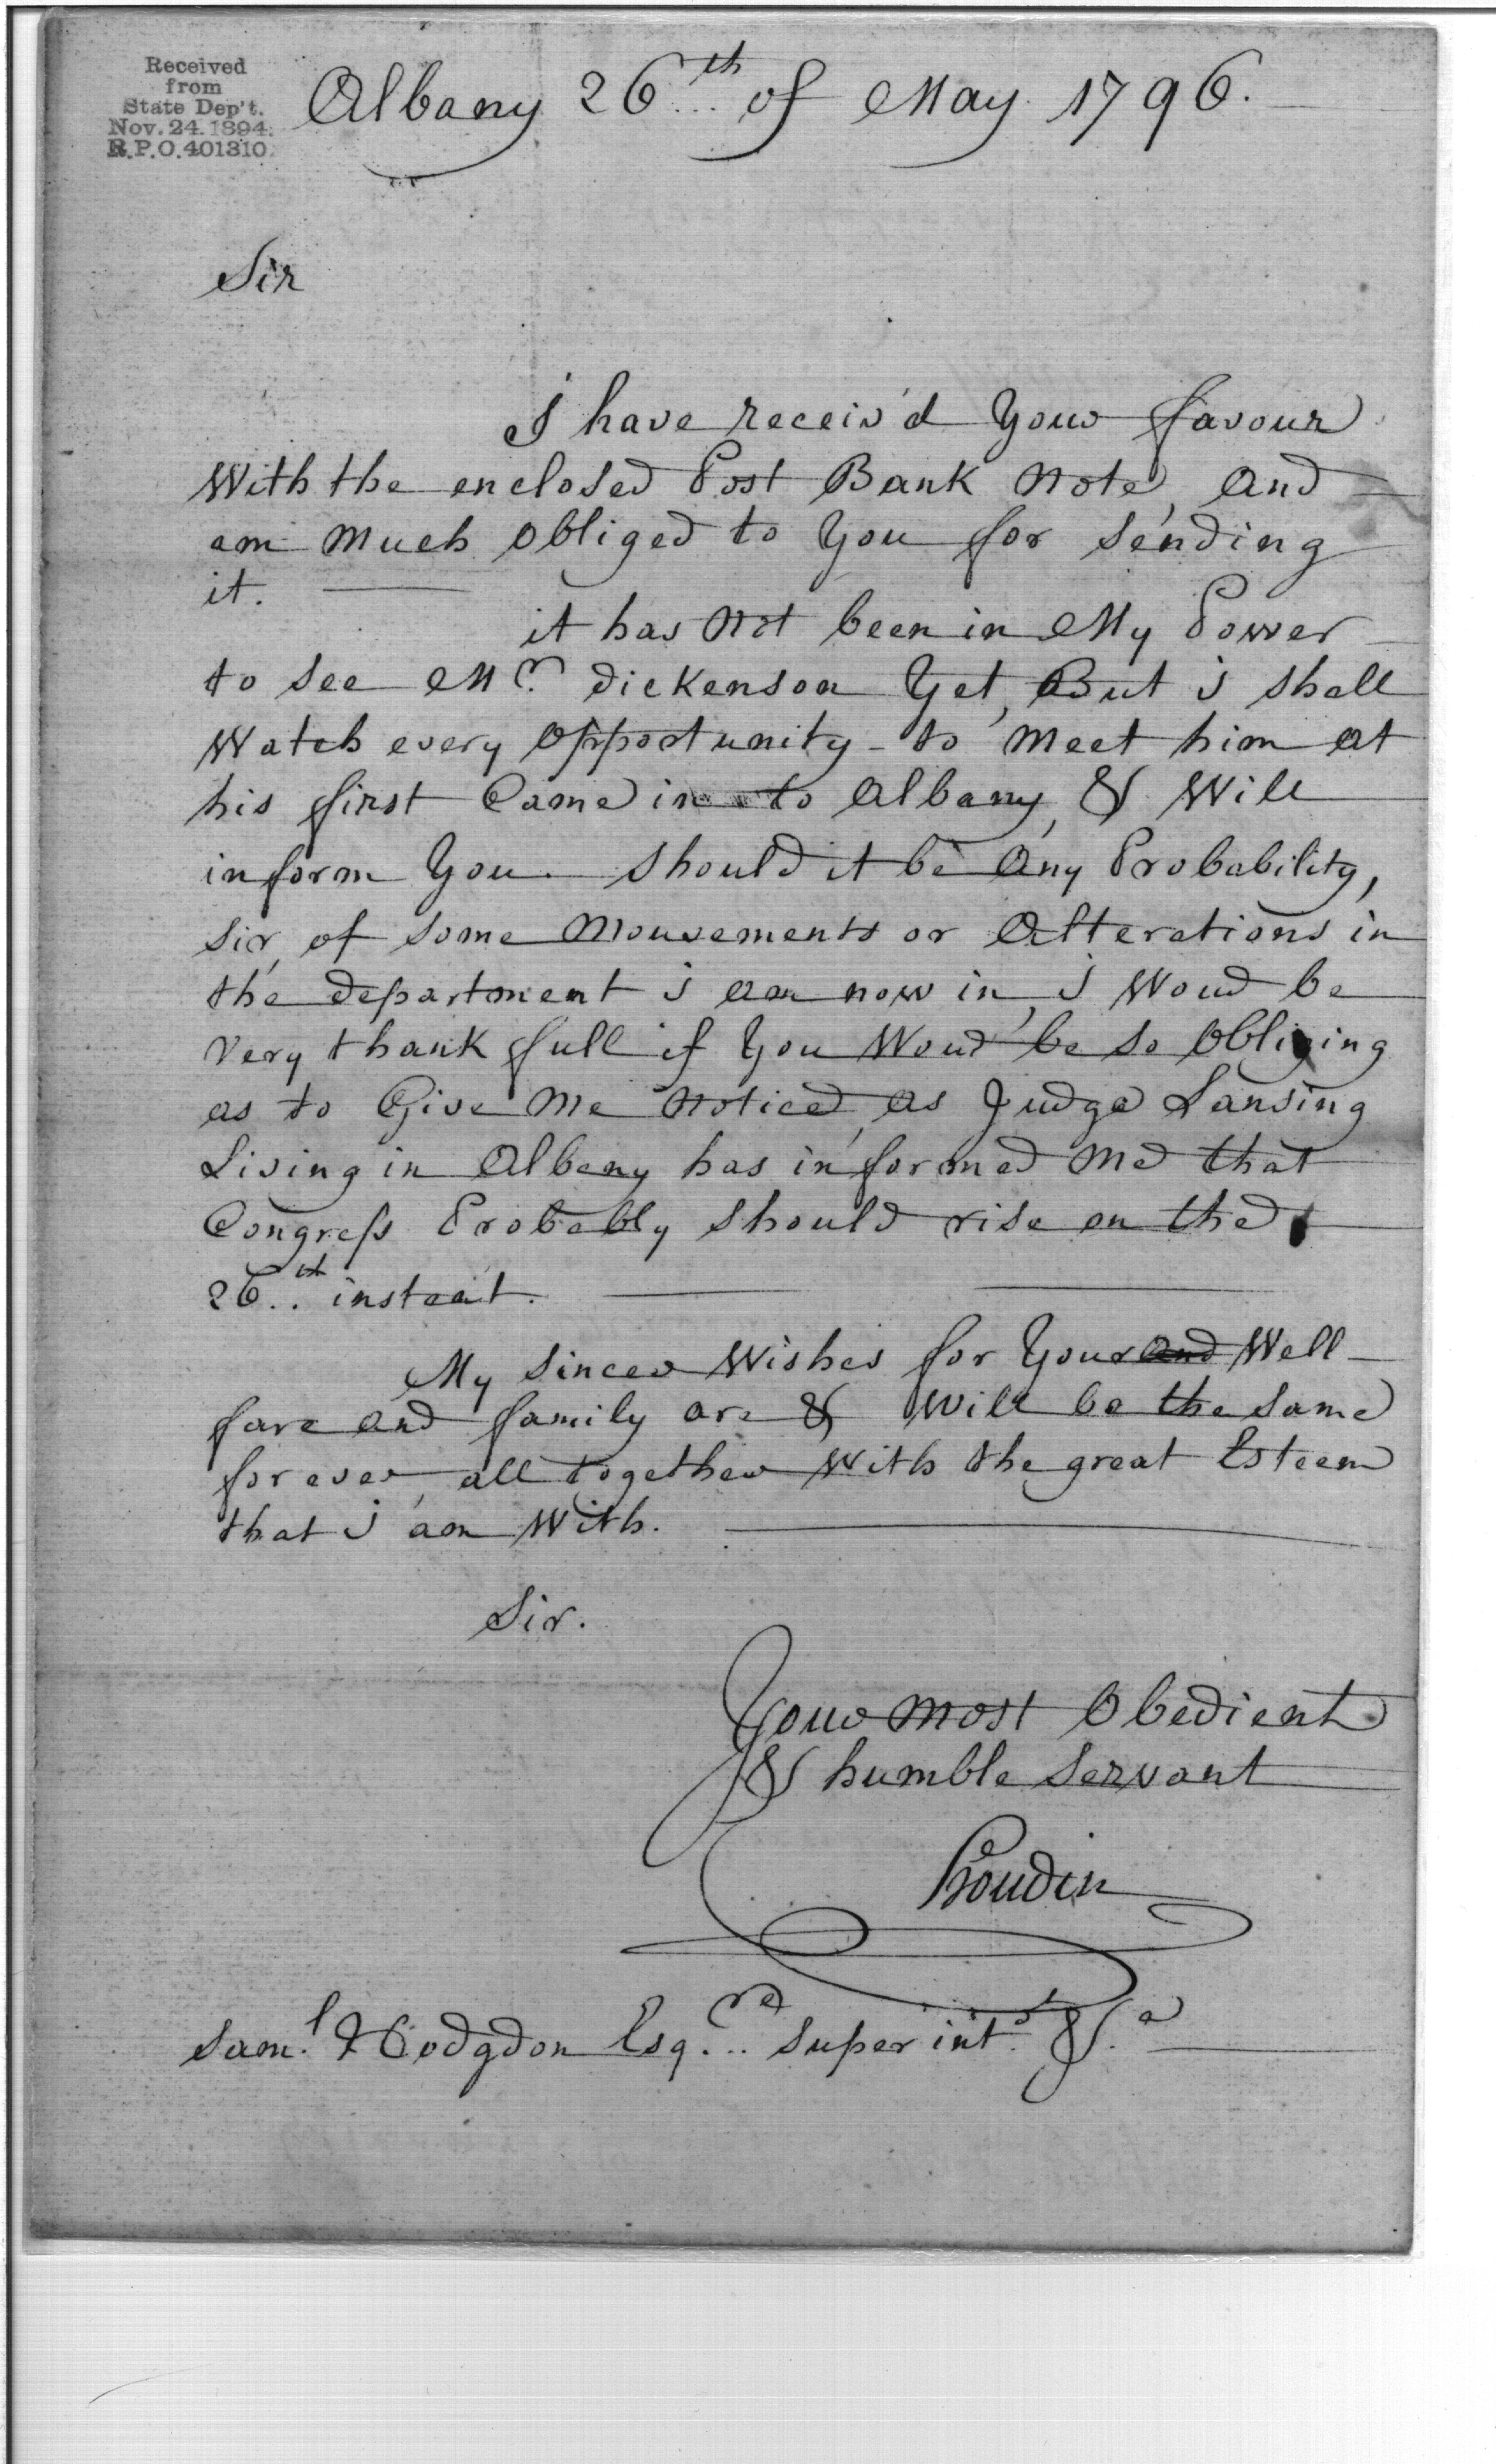 Received
from
State Dep't.
Nov. 24. 1894.
R.P.O. 401310.
Albany 26th of May 1796.
Sir
I have receiv'd Your favour
With the enclosed Post Bank Note, and
am Much obliged to You for sending
it.
it has Not been in My Power
to see Mr. dickenson Yet, But i shall
Watch every opportunity to Meet him at
his first Came in to Albany, & Will
inform You. should it be any Probability,
sir, of some Mouvements or Alterations in
the department i am now in, i Woud be
very thank full if You Woud be so obbliging
as to Give Me Notice, as Judge Lansing
Living in Albany has informed Me that
Congress Probably should rise on the
26th instant.
My sincer Wishes for Your and Well
fare and family are & Will be the same
for ever, all together With the great Esteem
that i am With.
Sir.
Your Most Obedient
& humble servant
Proudin
Saml. Hodgdon Esqre superintt. &a